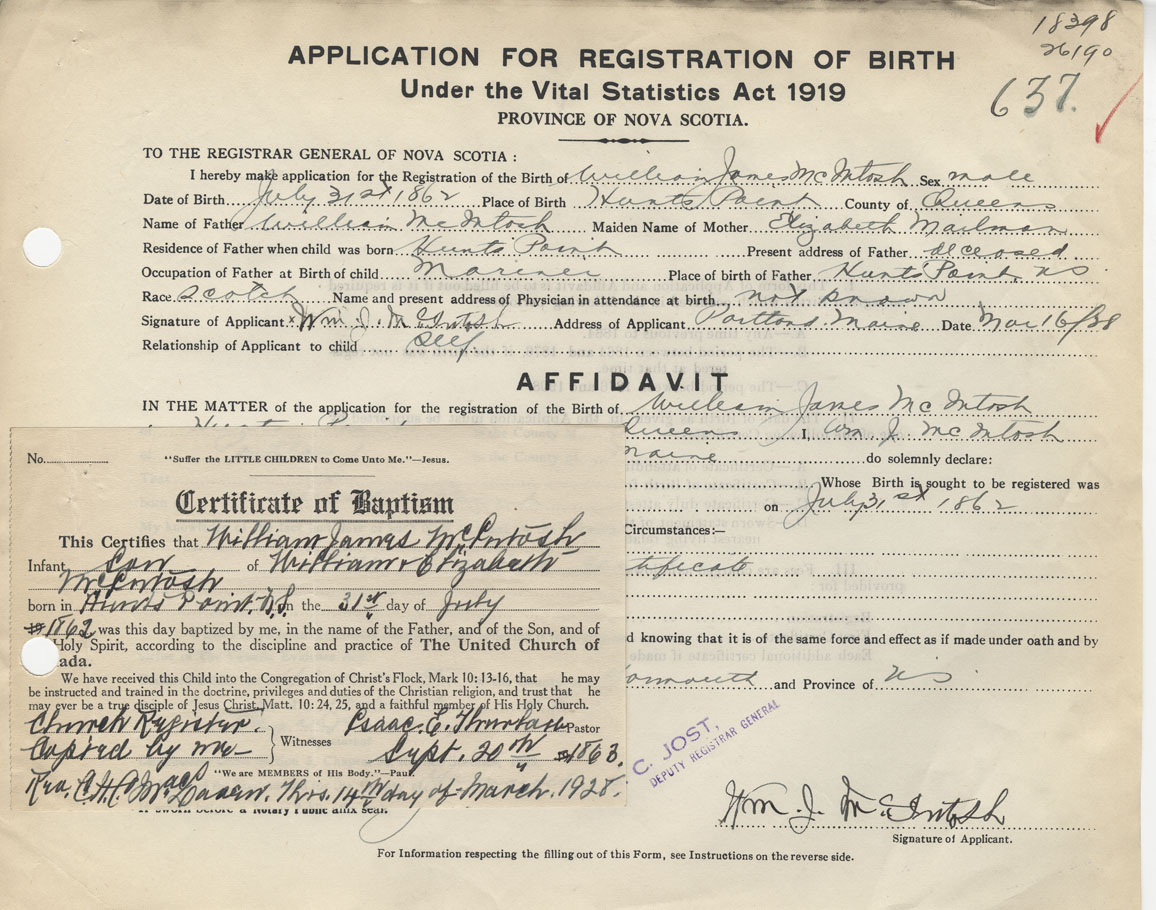 18298
26190
637.
APPLICATION FOR REGISTRATION OF BIRTH
Under the Vital Statistics Act 1919
PROVINCE OF NOVA SCOTIA.
TO THE REGISTRAR GENERAL OF NOVA SCOTIA :
I hereby make application for the Registration of the Birth of William James McIntosh Sex male
Date of Birth July 31st 1862 Place of Birth Hunts Point County of Queens
Name of Father William McIntosh Maiden Name of Mother Elizabeth Mailman
Residence of Father when child was born Hunts Point Present address of Father deceased
Occupation of Father at Birth of child Mariner Place of birth of Father Hunts Point NS
Race Scotch Name and present address of Physician in attendance at birth not known
Signature of Applicant x Wm. J. McIntosh Address of Applicant Portland Maine Date Mar 16/38
Relationship of Applicant to child Self
AFFIDAVIT
IN THE MATTER of the application for the registration of the Birth of William James McIntosh
Queens I, Wm. J. McIntosh
Maine do solemnly declare:
Whose Birth is sought to be registered was
on July 31st 1862
Circumstances:—
tificate
d knowing that it is of the same force and effect as if made under oath and by
and Province of NS
C. JOST,
DEPUTY REGISTRAR GENERAL
Wm. J. McIntosh
Signature of Applicant.
For Information respecting the filling out of this Form, see Instructions on the reverse side.
No.
"Suffer the LITTLE CHILDREN to Come Unto Me."—Jesus.
Certificate of Baptism
This Certifies that William James McIntosh
Infant Son of William & Elizabeth
McIntosh
born in Hunts Point, N.S. on the 31st day of July
1862 was this day baptized by me, in the name of the Father, and of the Son, and of
Holy Spirit, according to the discipline and practice of The United Church of
ada.
We have received this Child into the Congregation of Christ's Flock, Mark 10: 13-16, that he may
be instructed and trained in the doctrine, privileges and duties of the Christian religion, and trust that he
may ever be a true disciple of Jesus Christ, Matt. 10: 24, 25, and a faithful member of His Holy Church.
Church Register. Isaac. E. Thurlow Pastor
Copied by me— Witnesses Sept. 20th 1863.
"We are MEMBERS of His Body."—Paul.
Rev. This 14th day of March. 1928.